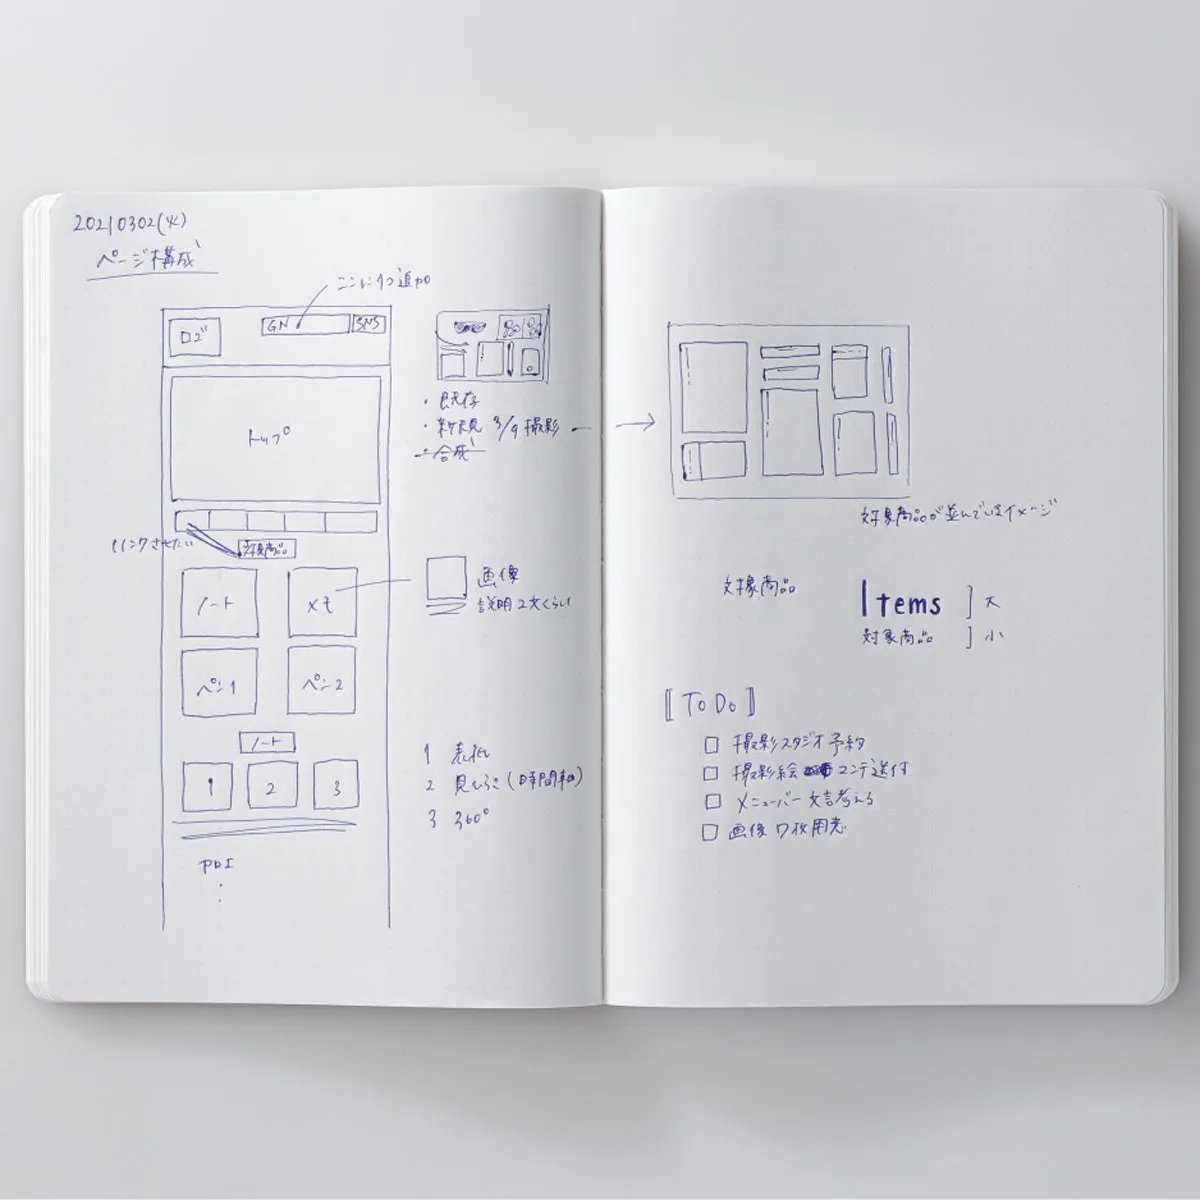 20210302(火)
ページ構成
ここに1つ追加
ロゴ
GN
SNS
トップ
・既存
・新規 3/9 撮影
・合成
リンクさせたい
対象商品
ノート
メモ
画像
説明2文くらい
ペン1
ペン2
ノート
1
2
3
1 表紙
2 見ひらき(時間軸)
3 360°
対象商品が並んでいるイメージ
対象商品
Items
大
対象商品
小
[ToDo]
□ 撮影スタジオ予約
□ 撮影絵コンテ送付
□ メニューバー文言考える
□ 画像7枚用意